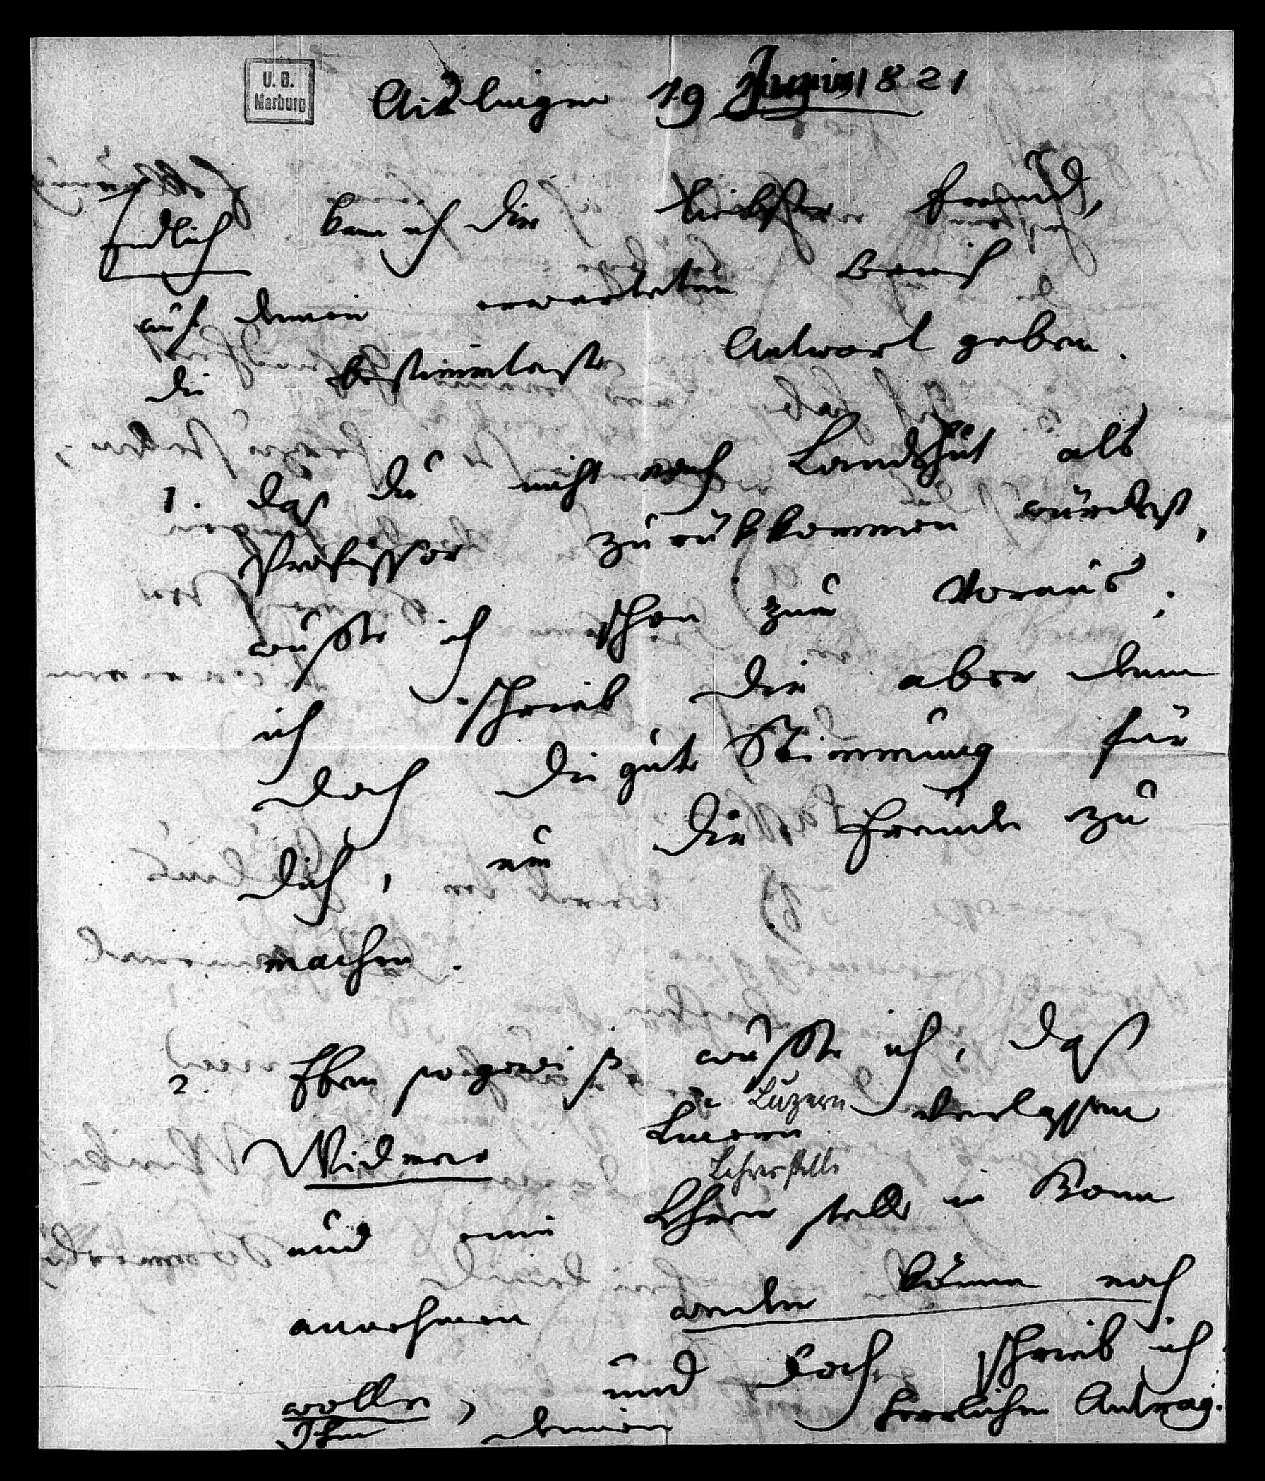 U. B.
Marburg
Aislingen 19 Junius 1821
Endlich kann ich dir liebster Freund,
auf deinen erwarteten Brief
die bestimmteste Antwort geben.
1. daß du nicht nach Landshut als
Professor zurükkommen würdest,
wußte ich schon zum Voraus;
ich schrieb dir aber denn
doch die gute Stimmung für
dich, um dir Freude zu
machen.
2. Eben so gewiß wußte ich, daß
Luzern
Widmer Luzern verlassen
Lehrerstelle
und eine Lehrerstelle in Bonn
annehmen weder könne noch
wolle, und doch schrieb ich
Ihm deinen herrlichen Antrag.